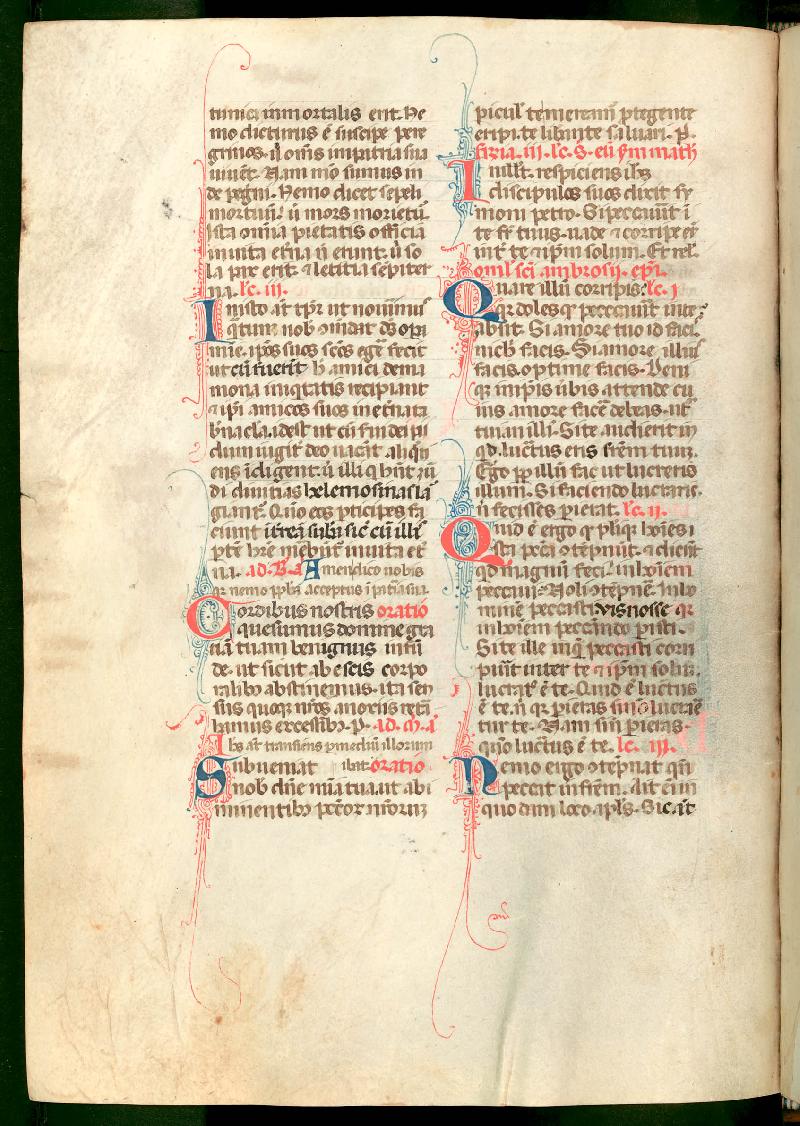 tunica inmortalis erit. Ne
mo dicturus ē suscipe pere
grinos. ꝙ om̄s in patria sua
uiuēt. Nam mō sumus in
de pegni. Nemo dicet sepeli
mortuū. ꝙ mors morietur.
Ista omia pietatis officia
in uita etna ñ erunt. ꝙ so
la pax erit. ⁊ letitia sepiter
na. lc̄. iii.
In isto at tp̄r ut nouim̄us
qtum nob ꝯmdat ds opa
mie. ipos suos scōs egē fecit
ut cū fuerīt h amici de ma
mona iniqtatis recipiant
⁊ ipi amicos suos in et̄na ta
b̄nacla. idest ut cū sui dei pi
dum iugit deo uacāt aliqn
ens īdigent. ꝙ illi q hn̄t mū
di diuitias h elemosinas la
giant̄. Qn̄o eos pticipes fa
ciunt
pte hr̄e mēbunt in uita et̄
na. ad. B̄. Amen dico uobis
qr nemo ppha acceptus ī patia sua.
Cordibus nostris oratio
quesumus domine gra
tiā tuam benignus infū
de. ut sicut ab escis corpo
ralibꝫ abstinemus. ita sen
sus quoqꝫ nr̄os a noxiis reta
hamus excessibꝫ. P. ad. M. a
Ihs at transiens p mediū illorum
Subueniat ibat. oratio
nob dn̄e mīa tua. ut ab i
minentibꝫ pcc̄oꝝ nr̄oruꝫ
piculis te mereamr ptegente
eripi. te libante saluari. P.
feria. iii. lc̄. S. eū sm̄ math
In illt. respiciens ihs
discipulos suos dixit sy
moni petro. Si peccauit ī
te fr̄ tuus. uade ⁊ corripe eū
int̄ te ⁊ ipm solum. Et rel.
oml̄. sci ambrosij. epī.
Quare illū corripis. lc̄. i
Qr doles qꝫ peccauit in te.
absit. Si amore tuo id facis
nich facis. Si amore illius
facis. optime facis. Deni
qꝫ in ipis ūbis attende cu
ius amore facē debeas. ut̄
tuum an illi. Si te audierit in
qd. luctus eris fr̄em tuuꝫ.
Ego pp illū fac ut lucreris
illum. Si faciendo lucraris.
n̄ fecisses pierat. lc̄. ii.
Quid ē ergo qꝫ pliqꝫ hoīes i
sta pcc̄a ꝯtēpnūt. ⁊ dicūt
qd magnū feci. in hoīem
peccaui. Noli ꝯtēpnē. In ho
minē peccasti. Vis nosse qꝫ
in hoīem peccando pisti.
Si te ille in q peccasti corri
puit inter te ⁊ ipm solū.
lucrat̄ ē te. Quid ē luctus
ē te. n̄ qꝫ pieras si n̄ lucraē
tur te. Nam si n̄ pieras.
quō luctus ē te. lc̄. iii.
Nemo ergo ꝯtēpnat qn̄
peccat in fr̄em. Ait eī in
quodam loco apls. Sic at̄